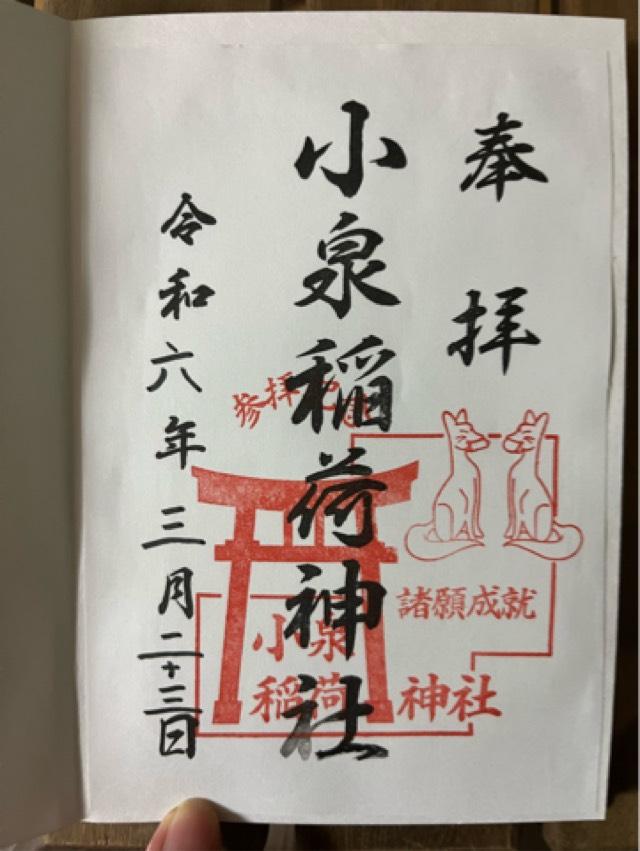 奉拝
小泉稲荷神社
令和六年三月二十三日
参拝記念
諸願成就
小泉
稲荷神社